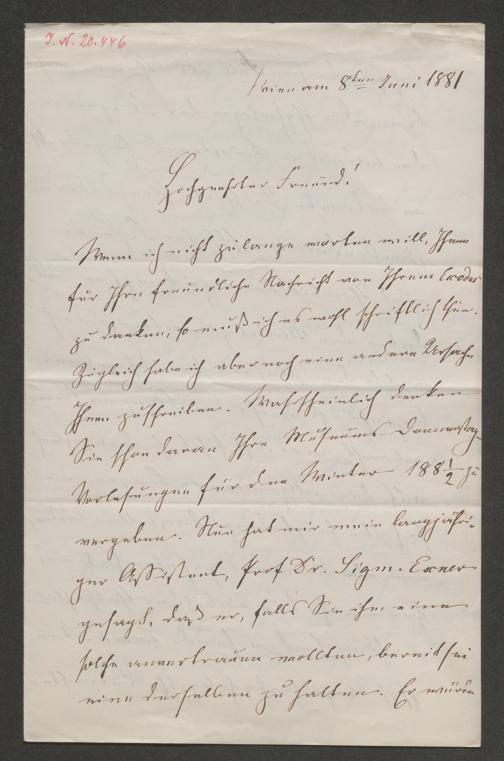 J. N. 20.446
Wien am 8ten Juni 1881
Hochgeehrter Freund!
Wenn ich nicht zulange warten will, Ihnen
für Ihre freundliche Nachricht von Ihrem Exodus
zu danken, so muß ich es wohl schriftlich thun.
Zugleich habe ich aber noch eine andere Ursache
Ihnen zuschreiben. Wahrscheinlich denken
Sie schon daran Ihre Museums Donnerstag-
Vorlesungen für den Winter 188 1/2 zu
vergeben. Nun hat mir mein langjähri-
ger Assistent, Prof Dr. Sigm. Exner
gesagt, daß er, falls Sie ihm eine
solche anvertrauen wollten, bereit sei
eine derselben zu halten. Er würde